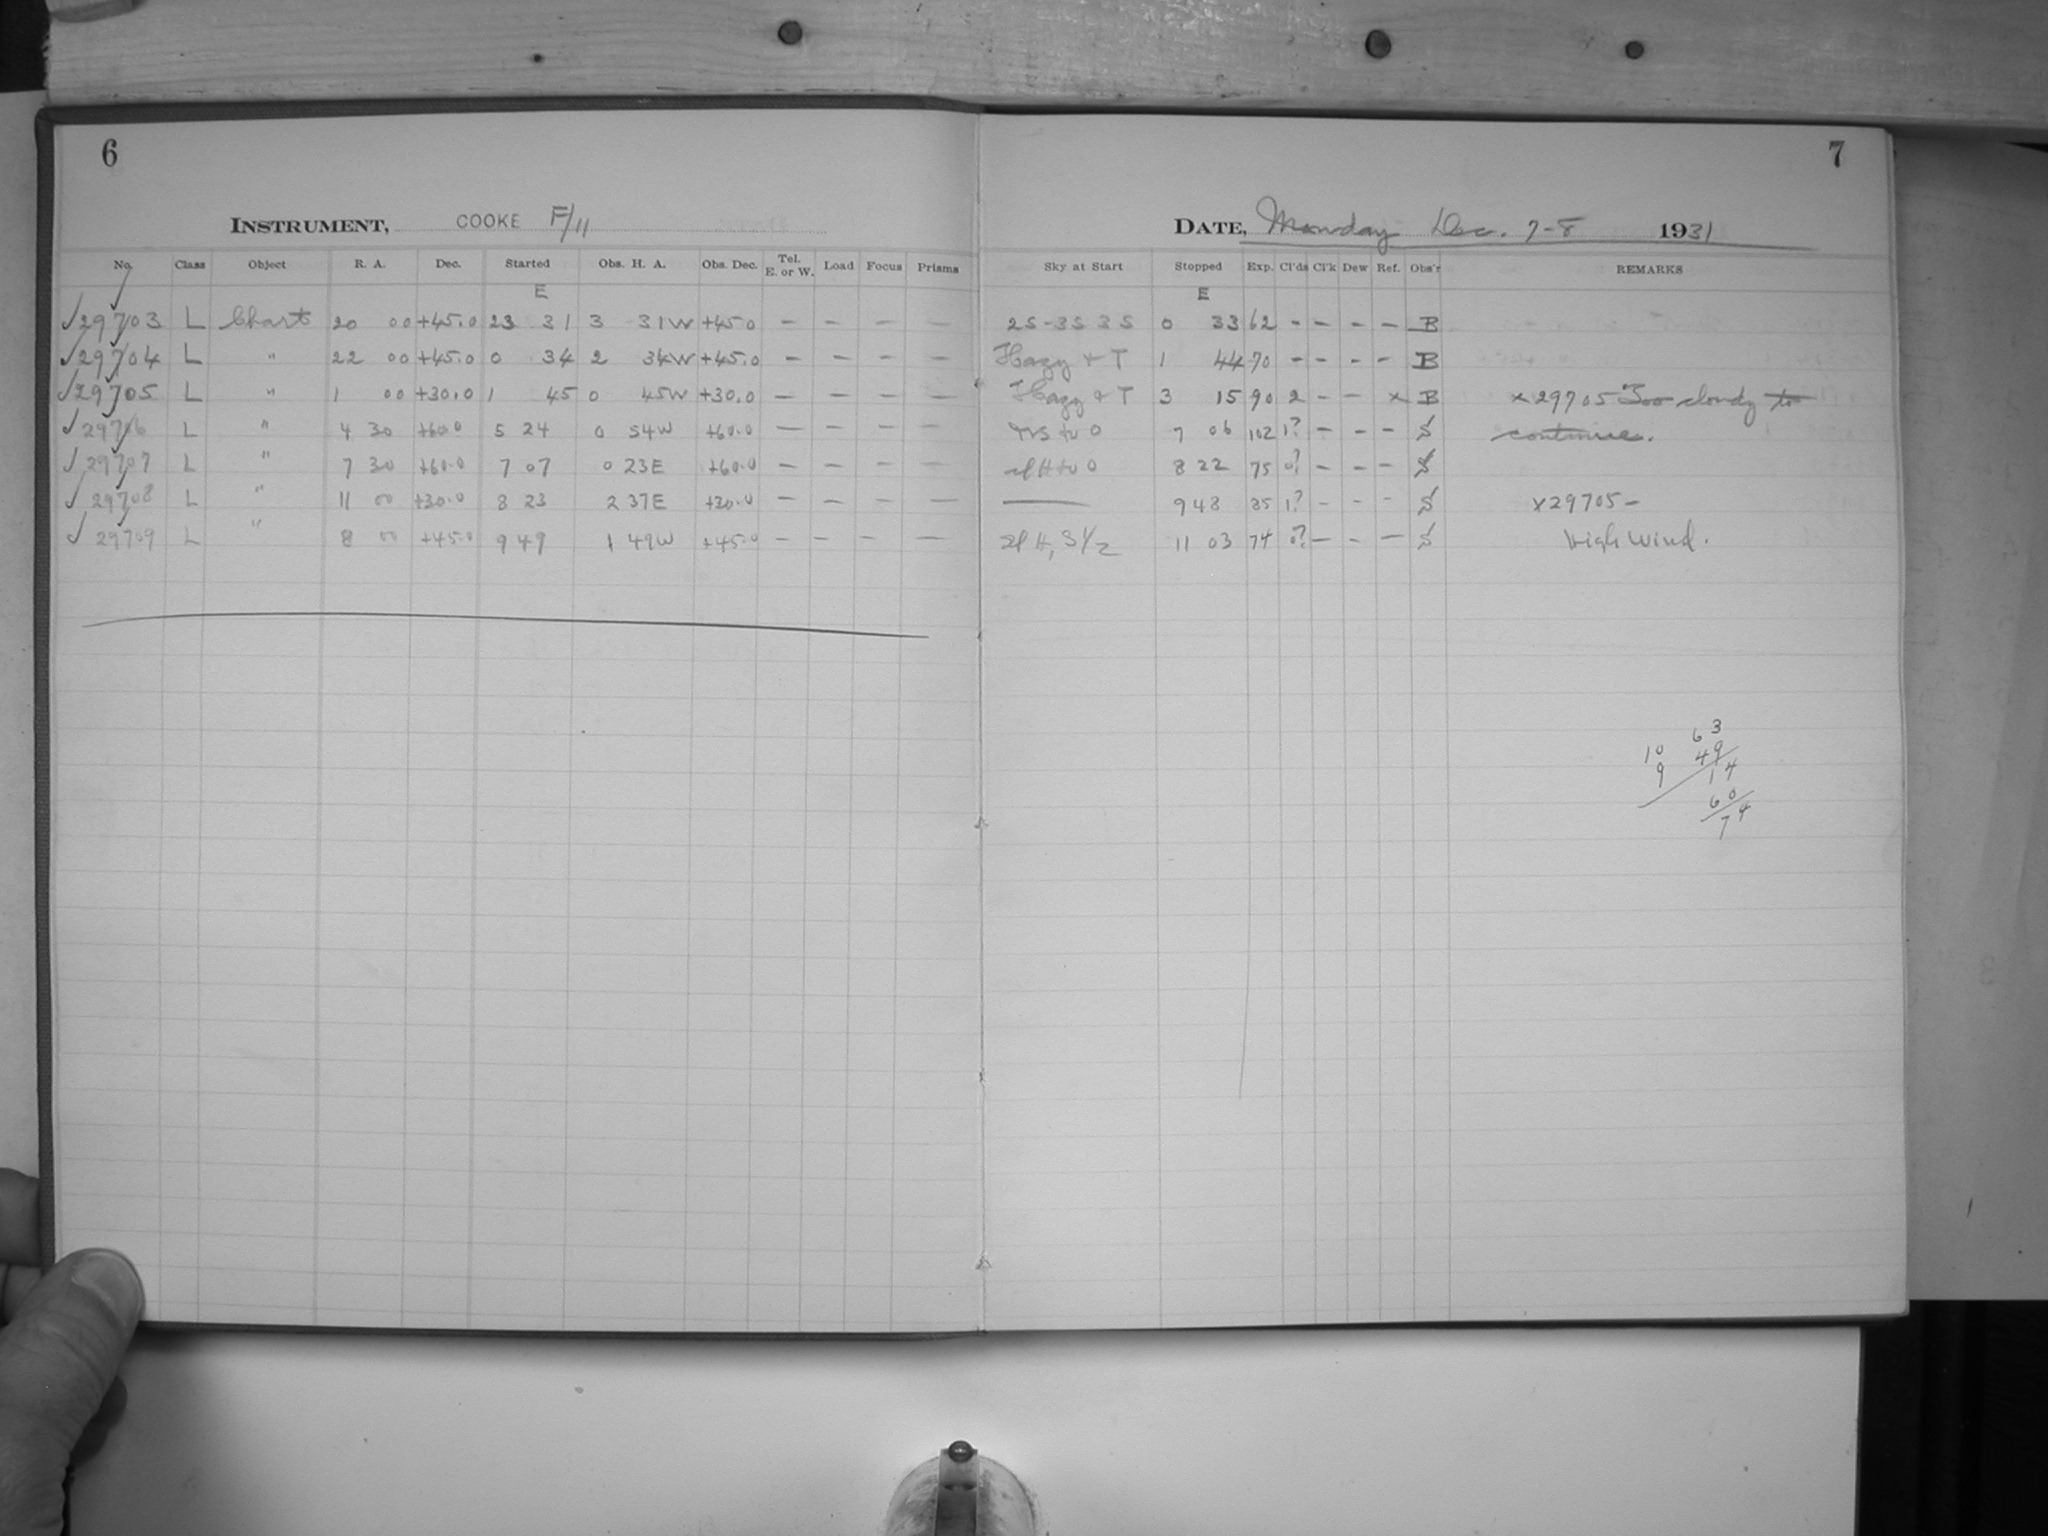 6
INSTRUMENT, COOKE F/11
No. Class Object R. A. Dec. Started Obs. H. A. Obs. Dec. Tel. E. or W. Load Focus Prisms
E
√29703 L Chart 20 00 +45.0 23 31 3 31W +45.0 — — — —
√29704 L " 22 00 +45.0 0 34 2 34W +45.0 — — — —
√29705 L " 1 00 +30.0 1 45 0 45W +30.0 — — — —
√29706 L " 4 30 +60.0 5 24 0 54W +60.0 — — — —
√29707 L " 7 30 +60.0 7 07 0 23E +60.0 — — — —
√29708 L " 11 00 +30.0 8 23 2 37E +30.0 — — — —
√29709 L " 8 00 +45.0 9 49 1 49W +45.0 — — — —
7
DATE, Monday Dec. 7-8 1931
Sky at Start Stopped Exp. Cl'ds Cl'k Dew Ref. Obs'r REMARKS
E
2S-3S 3S 0 33 62 - - - - B
Hazy + T 1 44 70 - - - - B
Hazy + T 3 15 90 2 - - x B x29705 Too cloudy to
to 0 7 06 102 1? - - - S continue.
to 0 8 22 75 0? - - - S
—— 9 48 85 1? - - - S x29705-
H, S1/2 11 03 74 0? - - - S High wind.
63
10 49
9 14
60
74